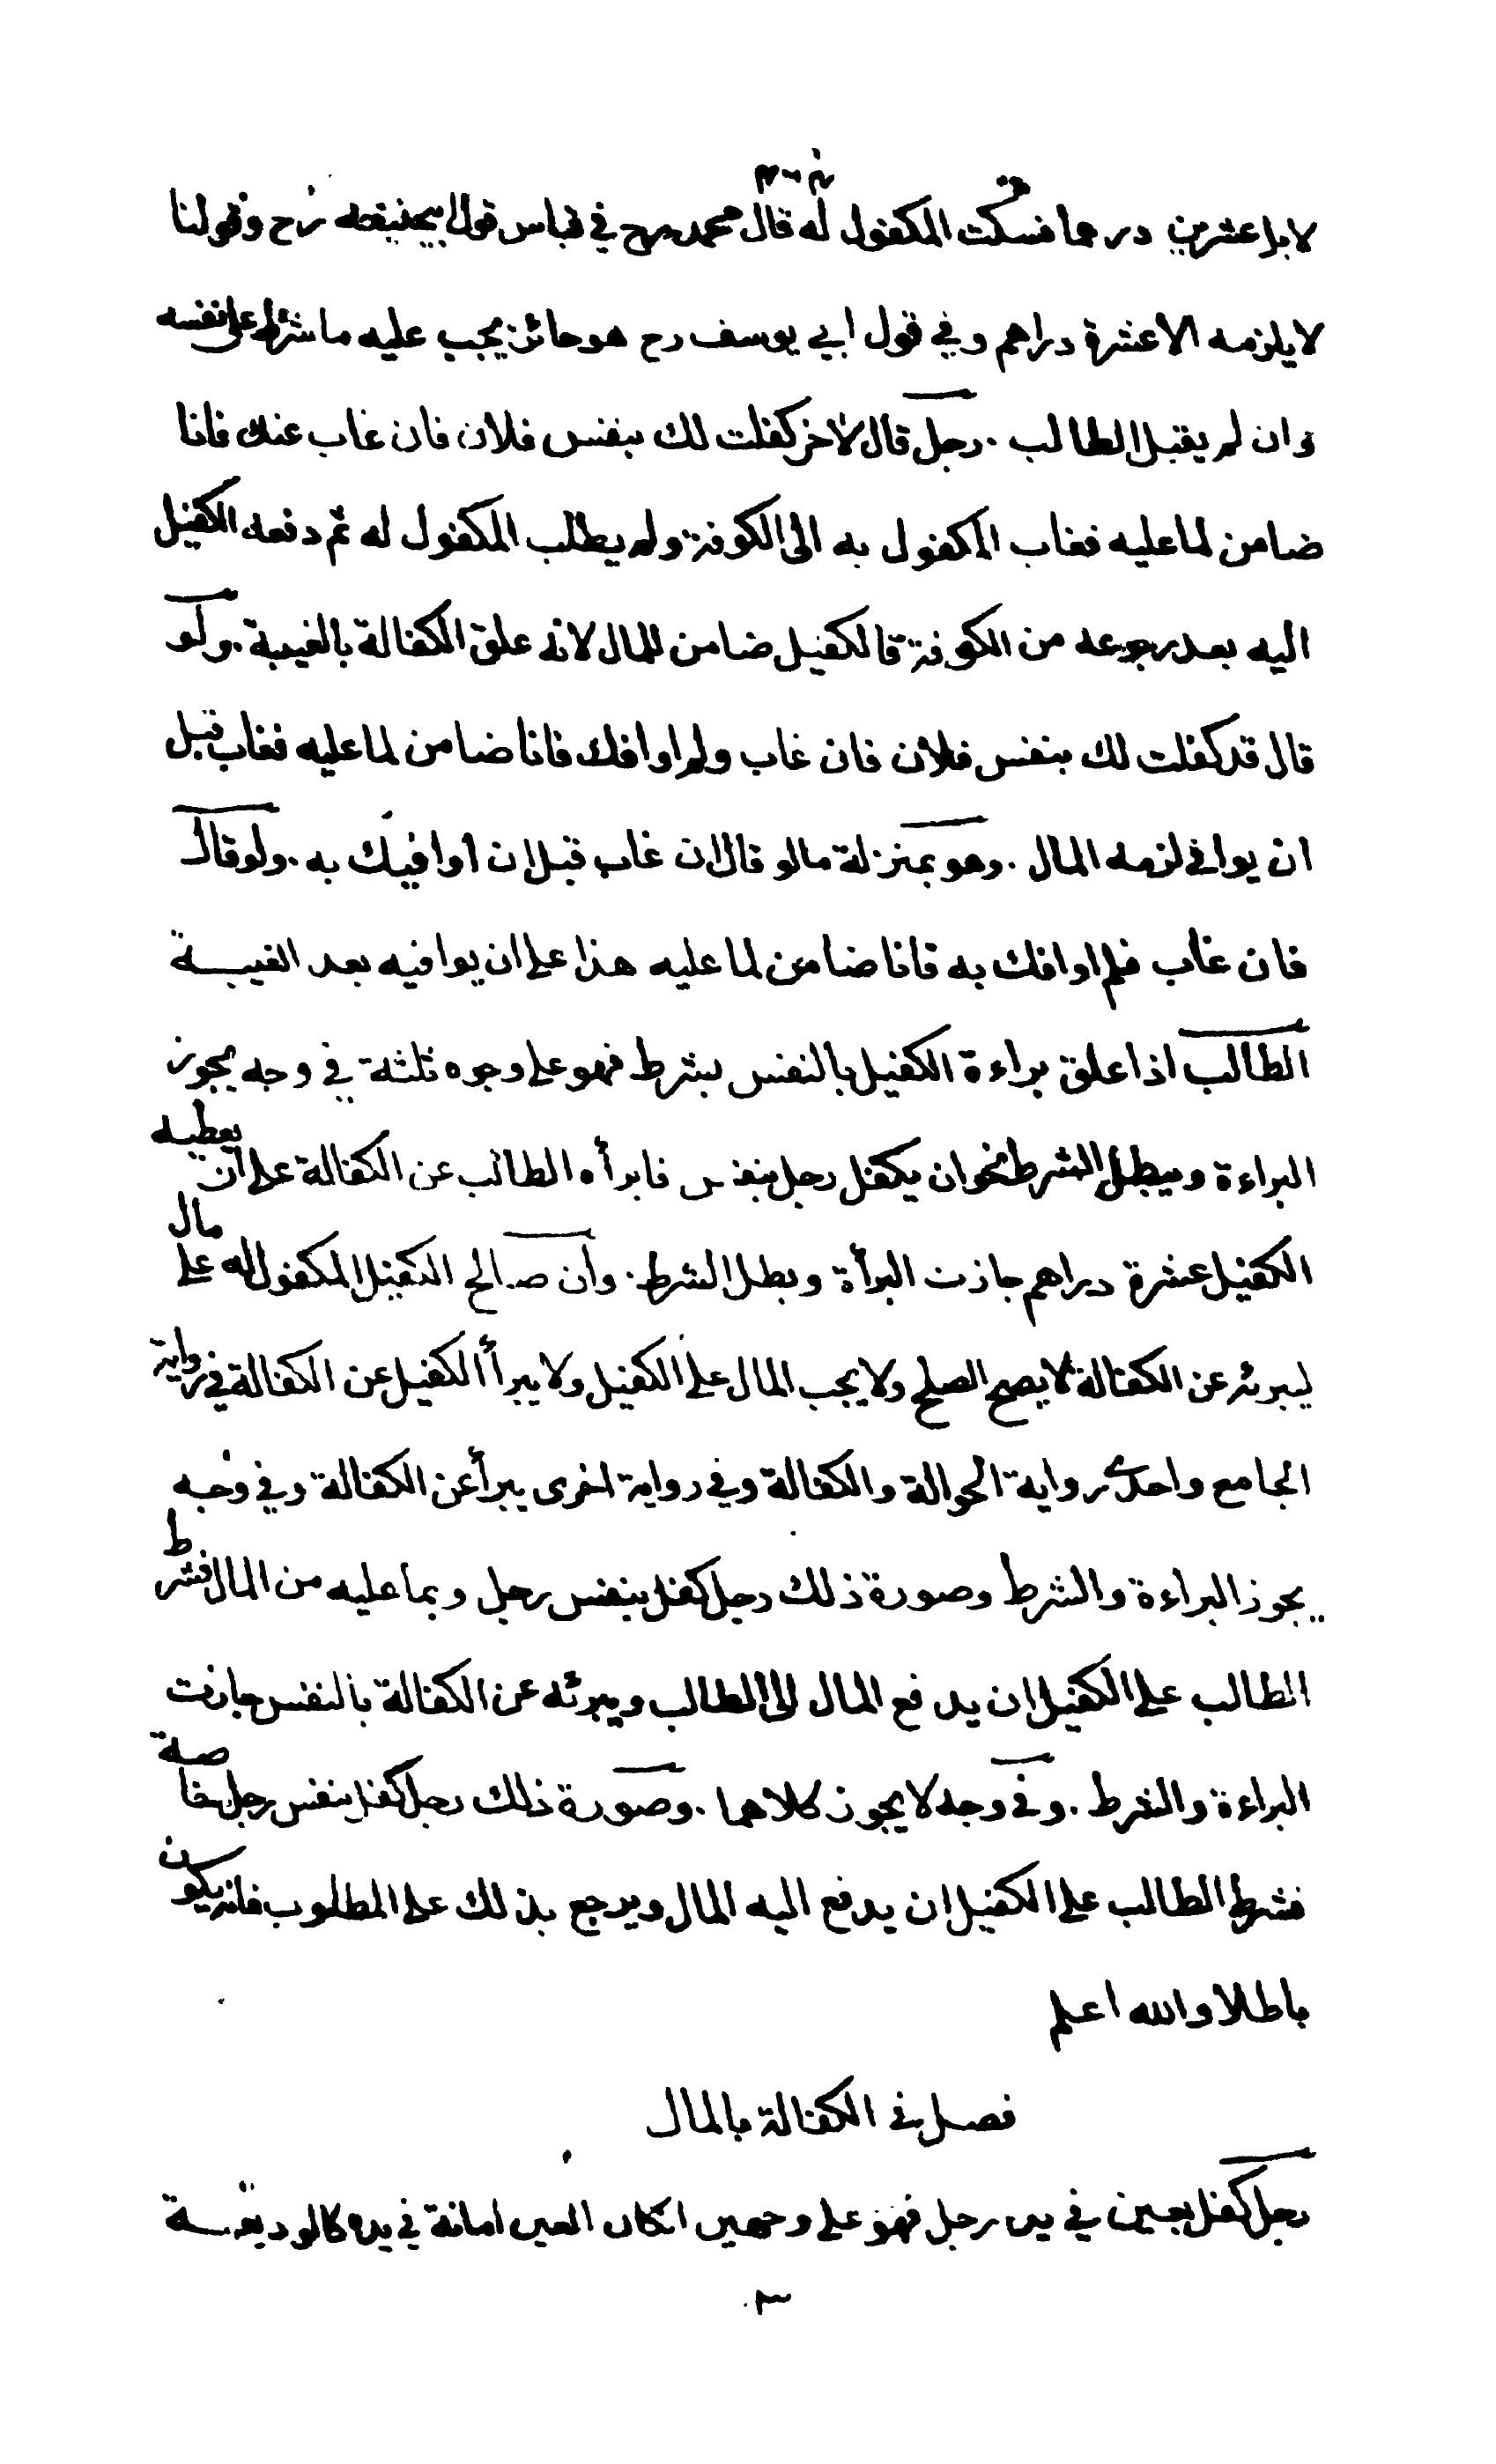 لا بل عشرين درهما فسكت المكفول له قال محمد رح في قياس قول ابيحنيفه رح وقولنا
لا يلزمه الا عشرة دراهم وفي قول ابي يوسف رح هو جائز يجب عليه ما شرط على نفسه
وان لم يقبل الطالب . رجل قال لاخر كفلت لك بنفس فلان فان غاب عنك فانا
ضامن لما عليه فغاب المكفول به الى الكوفة ولم يطلب المكفول له ثم دفعه الكفيل
اليه بعد رجوعه من الكوفة قالكفيل ضامن للمال لانه علق الكفالة بالغيبة . ولو
قال قد كفلت لك بنفس فلان فان غاب ولم اوافك فانا ضامن لما عليه فغاب قبل
ان يوافي لزمه المال . وهو بمنزلة مالو قال ان غاب قبل ان اوافيك به . ولو قال
فان غاب فلم اوافك به فانا ضامن لما عليه هذا على ان يوافيه بعد الغيبة
الطالب اذا علق براءة الكفيل بالنفس بشرط فهو على وجوه ثلثة في وجه يجوز
البراءة ويبطل الشرط نحو ان يكفل رجل بنفس فابرأه الطالب عن الكفالة على ان يعطيه
الكفيل عشرة دراهم جازت البرأة وبطل الشرط . وان صالح الكفيل المكفول له على مال
ليبرئه عن الكفالة لا يصح الصلح ولا يجب المال على الكفيل ولا يبرأ الكفيل عن الكفالة في رواية
الجامع واحدى رواية الحوالة والكفالة وفي رواية اخرى يبرأ عن الكفالة وفي وجه
يجوز البراءة والشرط وصورة ذلك رجل كفل بنفس رجل وبما عليه من المال فشرط
الطالب على الكفيل ان يدفع المال الى الطالب ويبرئه عن الكفالة بالنفس جازت
البراءة والشرط . وفي وجه لا يجوز كلاهما . وصورة ذلك رجل كفل بنفس رجل خاصة
فشرط الطالب على الكفيل ان يدفع اليه المال ويرجع بذلك على المطلوب فانه يكون
باطلا والله اعلم
فصل في الكفالة بالمال
رجل كفل بعين في يد رجل فهو على وجهين ان كان العين امانة في يده كالوديعة